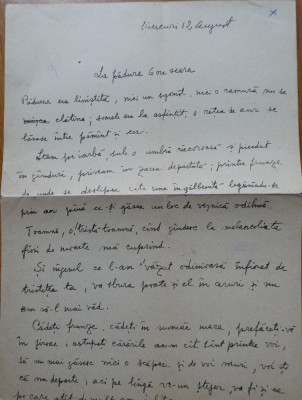 Miercuri 12, August
La pădure 6 ore seara
Pădurea era liniștită, nici un sgomot, nici o ramură nu se
clătina; soarele era la asfințit, o rețea de aur se
lăsase între pămînt și cer.
Stam pe iarbă sub o umbră răcoroasă și pierdut
în gînduri, priveam în zarea depărtată, printre frunze,
de unde se deslipea câte una îngălbenită legănându-se
prin aer până ce-și găsea un loc de veșnică odihnă.
Toamnă, o, tristă toamnă, cînd gîndesc la melancolicile
fiori de moarte mă cuprind.
Și îngerul ce l-am văzut odinioară înfiorat de
tristețea ta, va sbura poate și el în ceruri și nu
am să-l mai văd.
Cădeți frunze, cădeți în număr mare, prefăceți-vă
în șiroae, astupați cărările acum cît sînt printre voi,
să nu mai găsesc nici o scăpare și de voi muri, voi ști
că nu departe, aci pe lîngă vre-un stejar, va fi și ea
pe care atît de mult am